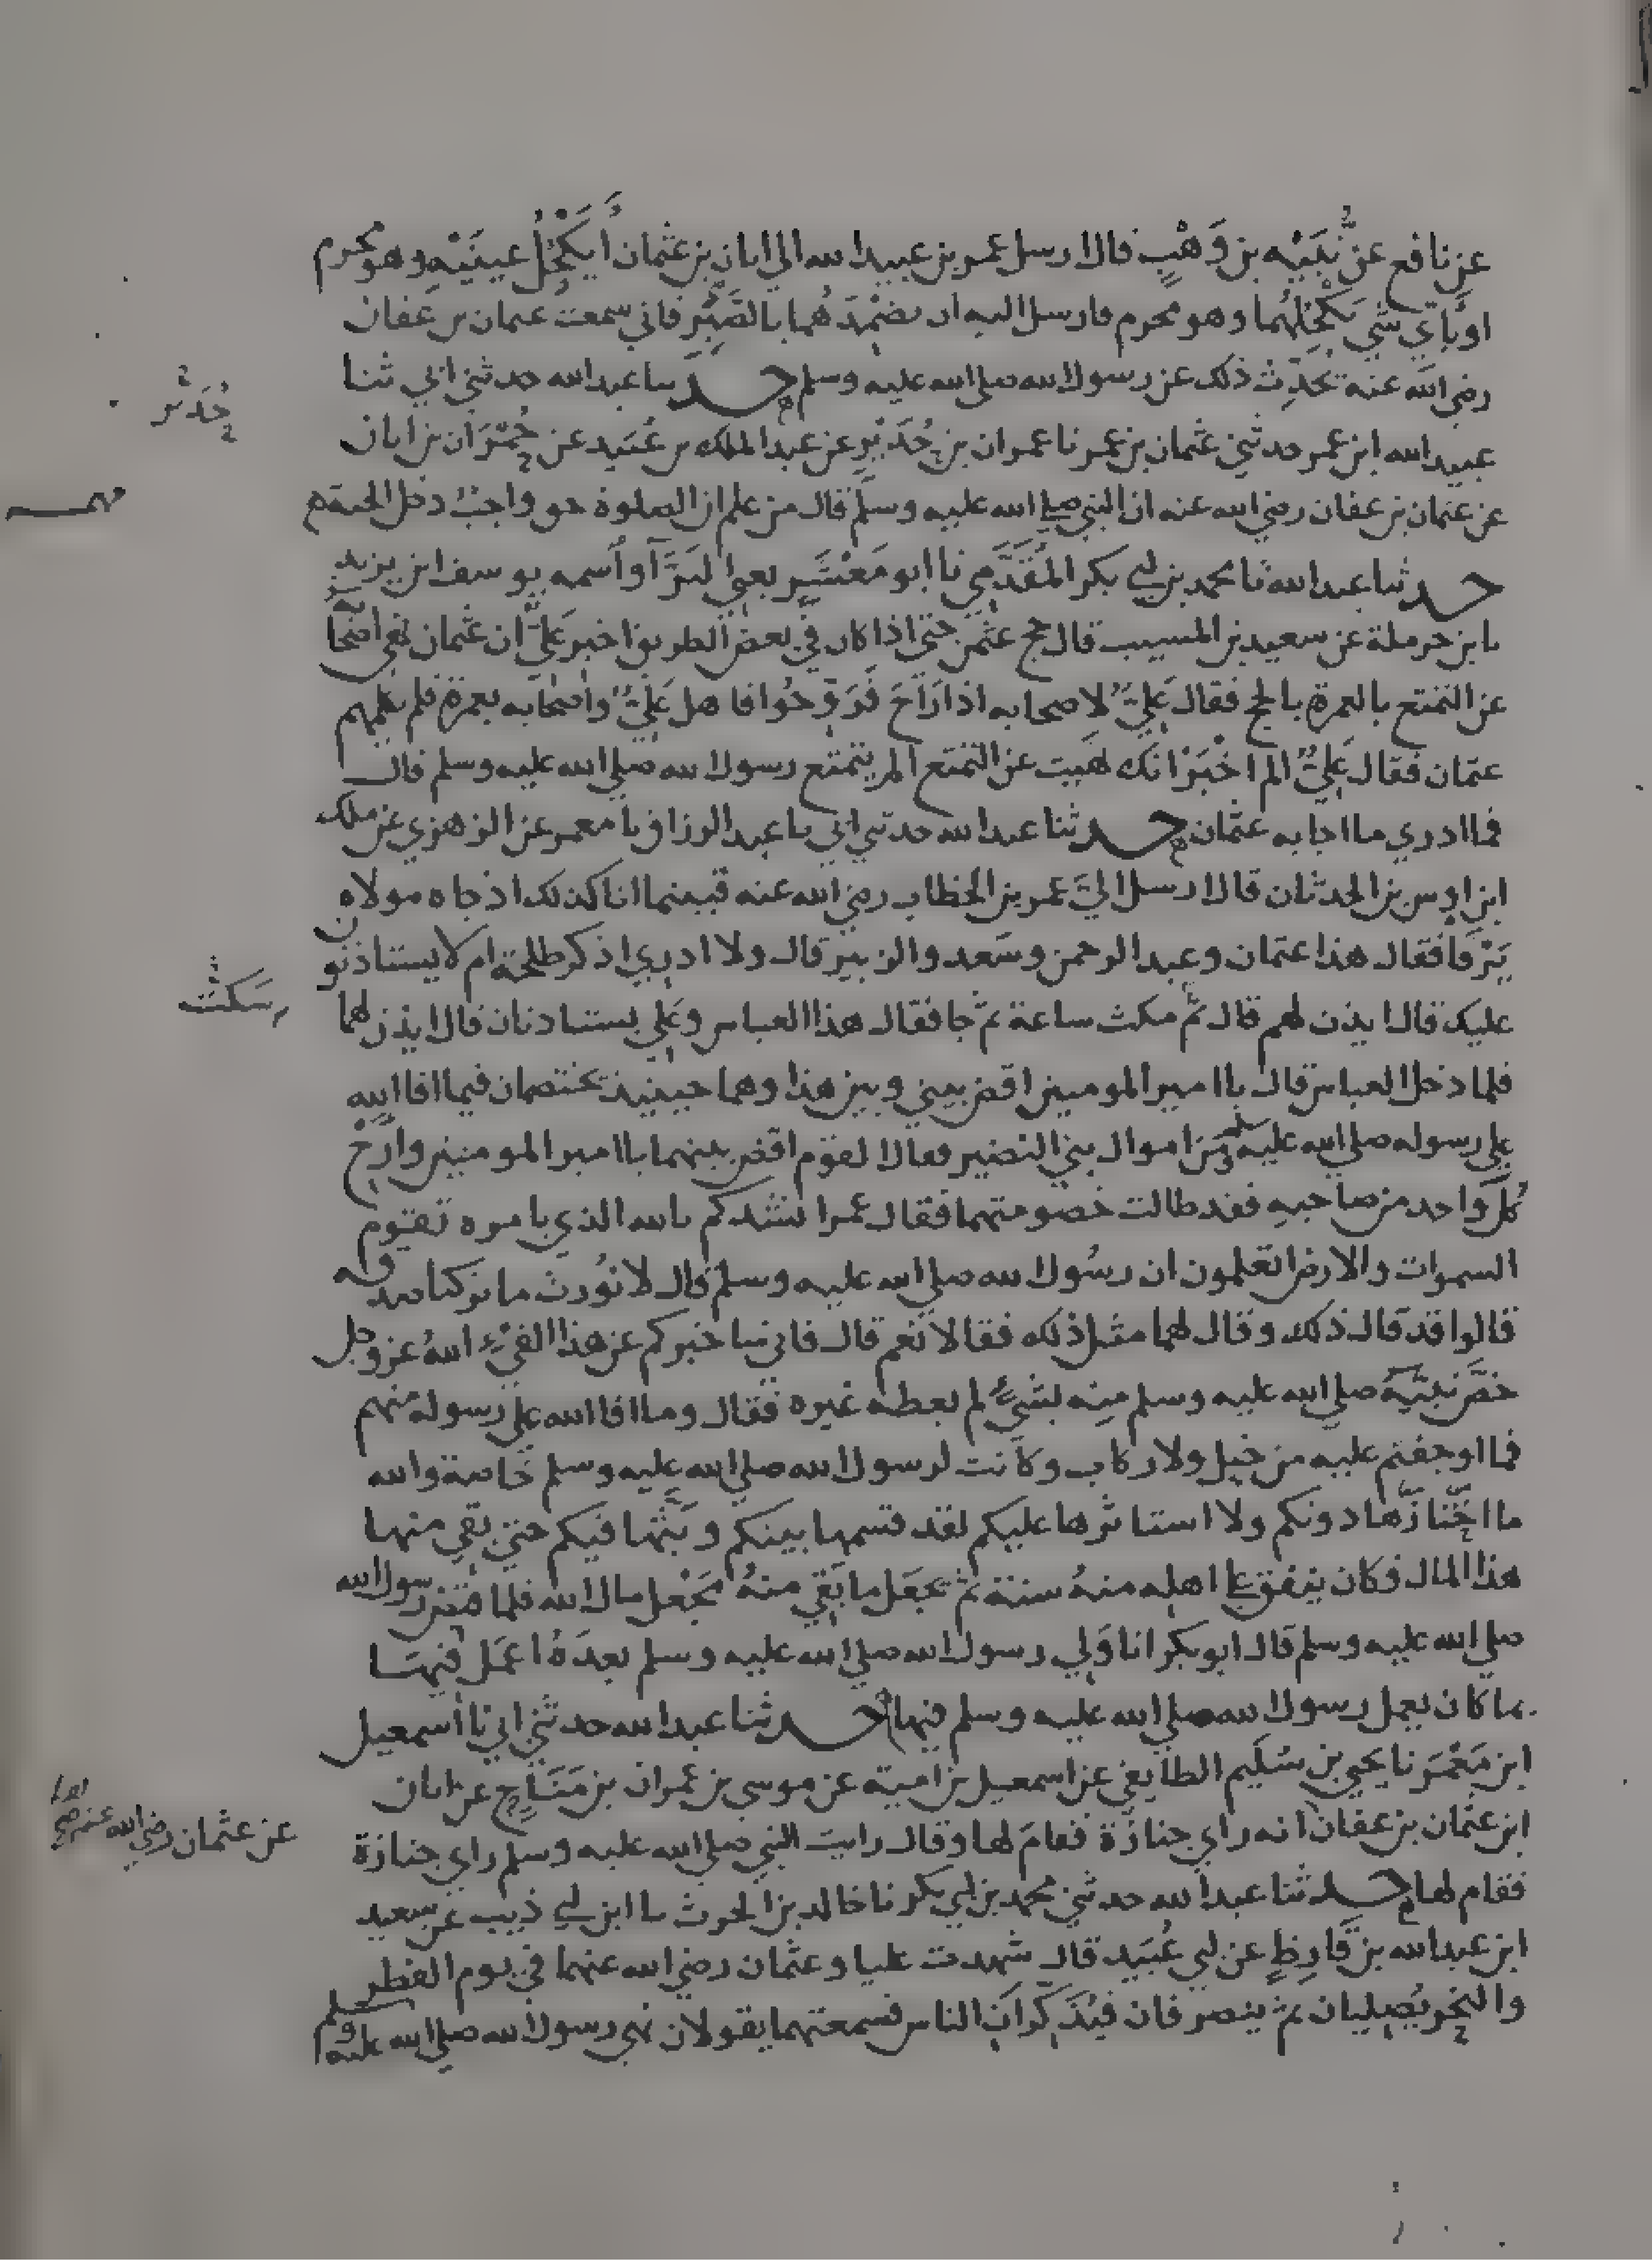 عن نافع عن نُبَيْه بن وَهْبٍ قال ارسل عمر بن عبيد الله الى ابان بن عثمان أيَكْحُلُ عينَيْهِ وهو محرم
او بأيّ شي يَكْحُلُهُما وهو محرم فارسل اليه ان يضمدهُما بالصَّبِر فاني سمعت عثمان بن عفان
رضي الله عنه يحَدِّث ذلك عن رسول الله صلى الله عليه وسلم حدثنا عبد الله حدثني ابي ثنا
حُدَير
عبيد الله ابن عمر حدثني عثمان بن عمر نا عمران بن حُدَيْرٍ عن عبد الملك بن عُبَيد عن حُمْرَان بن ابان
عن عثمان بن عفان رضي الله عنه ان النبي صلى الله عليه وسلم قال من علم ان الصلوة حق واجبٌ دخل الجنة
حدثنا عبد الله نا محمد بن ابي بكر المُقَدَّمي نا ابو مَعْشَرٍ يعني البَرَّآ واسمه يوسف ابن يزيد
نا ابن حرملة عن سعيد بن المسيب قال حج عثمن حتى اذا كان في بعض الطريق اخبر عَليّ ان عثمان نهى اصحابه
عن التمتع بالعمرة بالحج فقال عَليٌّ لاصحابه اذا رَاحَ فَرُوحُوا فاهل عَليٌّ واصحابه بعمرة فلم يكلمهم
عثمان فقال عَليٌّ الم اخْبَرْ انك نهيت عن التمتع الم يتمتع رسول الله صلى الله عليه وسلم قال
فما ادري ما اجابه عثمان حدثنا عبد الله حدثني ابي نا عبد الرزاق نا معمر عن الزهري عن ملك
ابن اوس بن الحدثان قال ارسل اليَّ عمر بن الخطاب رضي الله عنه فبينما انا كذلك اذ جاه مولاه
يَرْفَا فقال هذا عثمان وعبد الرحمن وسَعد والزبير قال ولا ادري اذكر طلحة ام لا يستاذنون
سَكتَ
عليك قال ايذن لهم قال ثم مكث ساعة ثم جا فقال هذا العباس وعَلي يستاذنان قال ايذن لهما
فلما دخل العباس قال يا امير المومنين اقض بيني وبين هذا وهما حينيذ يختصمان فيما افا الله
على رسوله صلى الله عليه وسلم من اموال بني النضير فقال القوم اقض بينهما يا امير المومنين وارح
كُلّ واحد من صاحبهِ فقد طالت خصومتهما فقال عمر انشدكم بالله الذي بامره تقوم
السموات والارض اتعلمون ان رسُول الله صلى الله عليه وسلم قال لا نُورث ما تركنا صدقه
قالوا قد قال ذلك وقال لهما مثل ذلك فقالا نعم قال فاني ساخبركم عن هذا الفيْءِ اللهُ عز وجل
خصَّ نبيّهُ صلى الله عليه وسلم منه بشيءٍ لم يعطه غيره فقال وما افا الله على رسوله منهم
فما اوجفتم عليه من خيل ولا ركاب وكانت لرسول الله صلى الله عليه وسلم خاصة والله
ما احْتازَها دونكم ولا استاثرها عليكم لقد قسمها بينكم وبَثَّها فيكم حتى بقي منها
هذا المال فكان ينفق على اهله منهُ سنة ثم يجعَل ما بَقي منهُ مَجْعل مال الله فلما قبض رسول الله
صلى الله عليه وسلم قال ابو بكر انا وَلي رسول الله صلى الله عليه وسلم بعدَهُ اعمَل فيها
بما كان يعمل رسول الله صلى الله عليه وسلم فيها حدثنا عبد الله حدثني ابي نا اسمعيل
ابن مَعْمَر نا يحيى بن سُلَيم الطايفي عن اسمعيل بن امية عن موسى بن عمران بن مَنَّاحٍ عن ابان
عن عثمان رضي الله عنه صح
ابن عثمان بن عفان انه راى جنازَة فقامَ لها وقال رايت النبي صلى الله عليه وسلم راى جنازة
فقام لها حدثنا عبد الله حدثني محمد بن ابي بكر نا خالد بن الحرث نا ابن ابي ذيب عن سعيد
ابن عبد الله بن قَارِظٍ عن ابي عُبَيد قال شهدت عليا وعثمان رضي الله عنهما في يوم الفطر
والنحر يُصليان ثم ينصرفان فيُذَكّرانِ الناس فسمعتهما يقولان نهى رسول الله صلى الله عليه وسلم